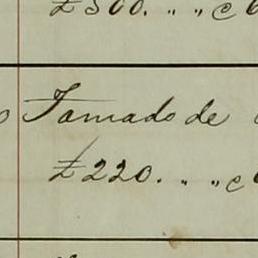 £300. " " c
Tamado de
£220. " " c